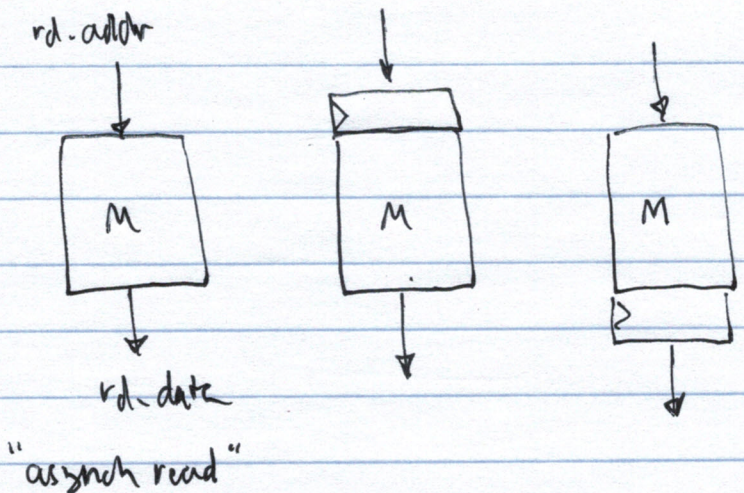 rd-addr
M
M
M
rd_data
"asynch read"